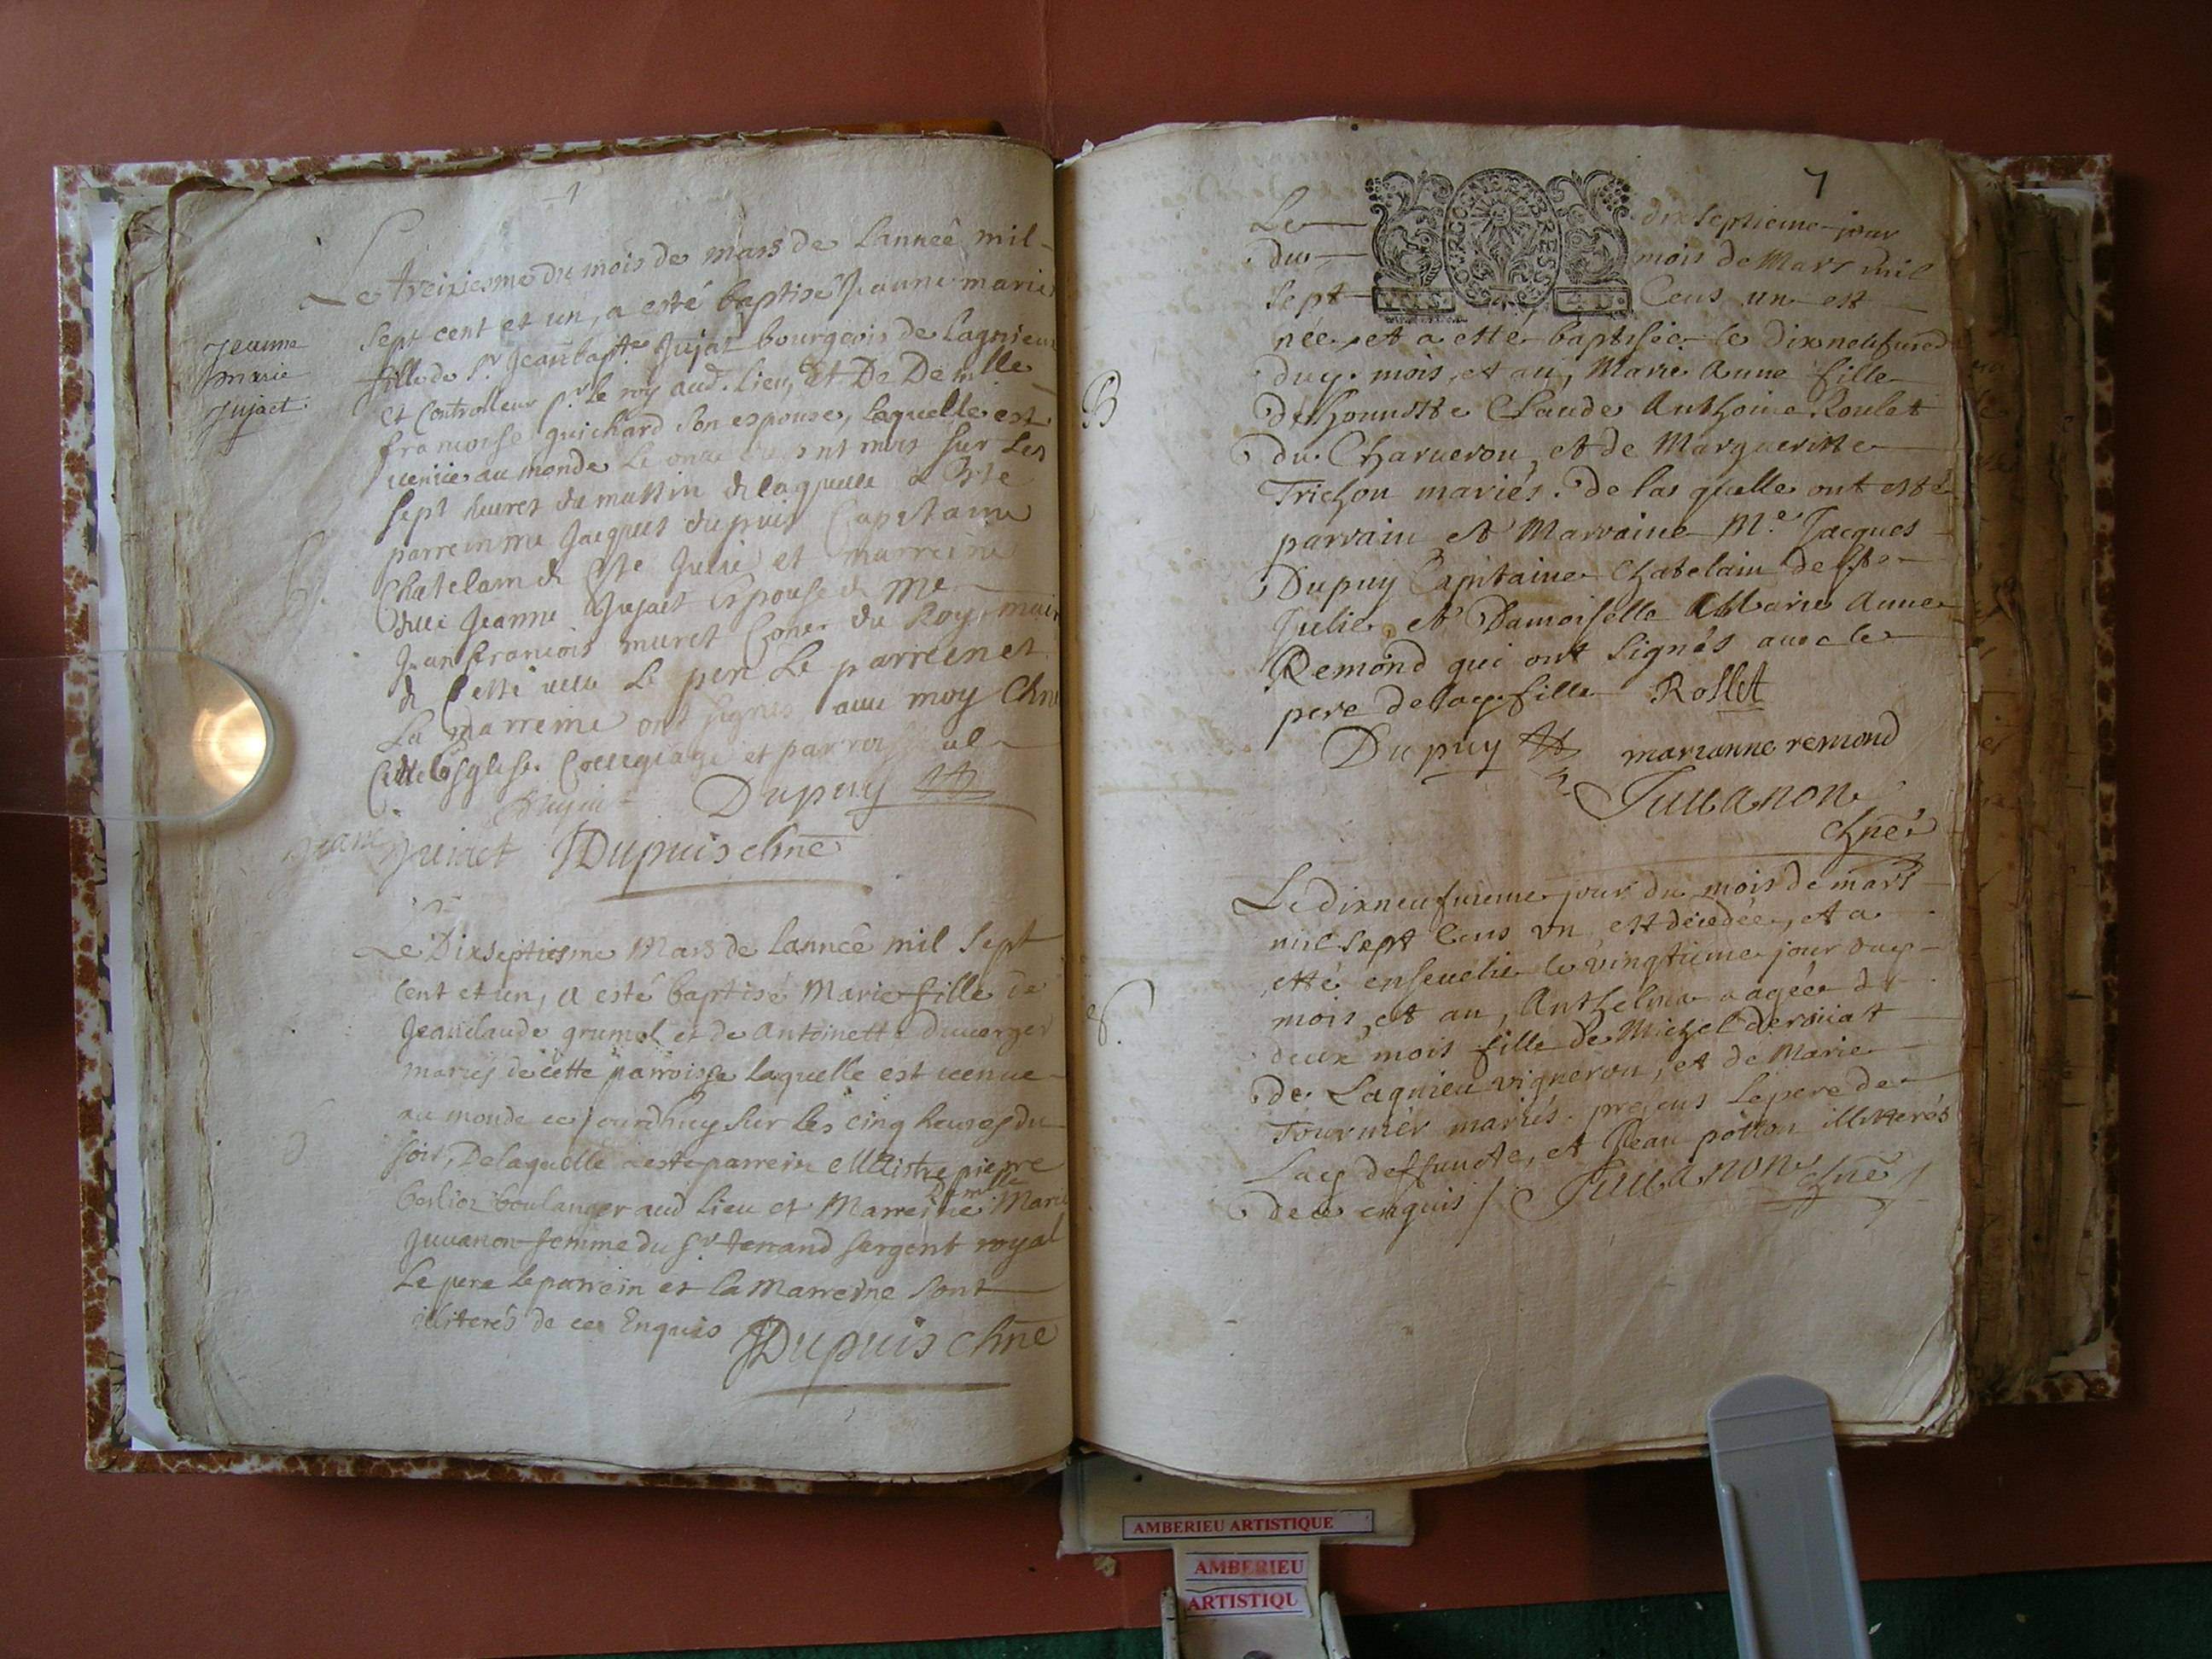 Le treiziesme du mois de mars de Lanneê mil
sept cent et un, a esté baptisé Jeanne marie
fille de Sr Jean bapte Jujat bourgeois de Lagnieu
et Controlleur pr le roy aud. Lieu, Et De Demlle
francoise guichard Son espouse, laquelle est
venüe au monde Le onze mois sur Les
sept heures du mattin de laquelle a este
parrein me Jacques dupuis Capitaine
Chatelain de Ste Julie et marreine
Jeanne Jujact Espouse de Me
Jean francois muret du Roy
de Cette ville Le pere Le parrein et
La marreine ont signés avec moy
Collegiale et
Dupuy
Jeanne Jujact JDupuis chne
Jeanne
marie
Jujact
Le Dixseptiesme Mars de Lanneê mil Sept
Cent et un, a esté baptisé Marie fille de
Jeanclaude grumel et de Antoinette Duverger
mariés de cette parroisse laquelle est venue
au monde ce jourdhuy sur les cinq heures du
soir, De laquelle a este parrein Maistre pierre
berlioz boulanger aud Lieu et Marreine Demlle Marie
Juvanon femme du Sr ferrand sergent royal
Le pere le parrein et la Marreine Sont
illiterés de ce Enquis JDupuis chne
7
Le dixseptieme jour
du mois de Mars mil
sept Cens un est
née, et a etté baptisée le dixneufvieme
duy. mois, et an, Marie Anne fille
de honnette Claude Anthoine Roulet
du Charveron, et de Margueritte
Trichon mariés. De la quelle ont esté
parrain et Marraine Me. Jacques
Dupuy Capitaine Chatelain de Ste
Julie, et Damoiselle Marie Anne
Remond qui ont signés avec le
pere de lay. fille Rollet
Dupuy marianne remond
Juuanon
chne
B
Le dixneufvieme jour du mois de mars
mil sept Cens un est décedée, et a
etté ensevelie le vingtieme jour duy
mois, et an, Anthelma aagée de
deux mois fille de Michel derviat
de Lagnieu vigneron, et de Marie
Tournier mariés. presens le pere de
Lay deffuncte, et Jean potton illitterés
de ce enquis / Juuanon chne
S.
AMBERIEU ARTISTIQUE
AMBERIEU
ARTISTIQU